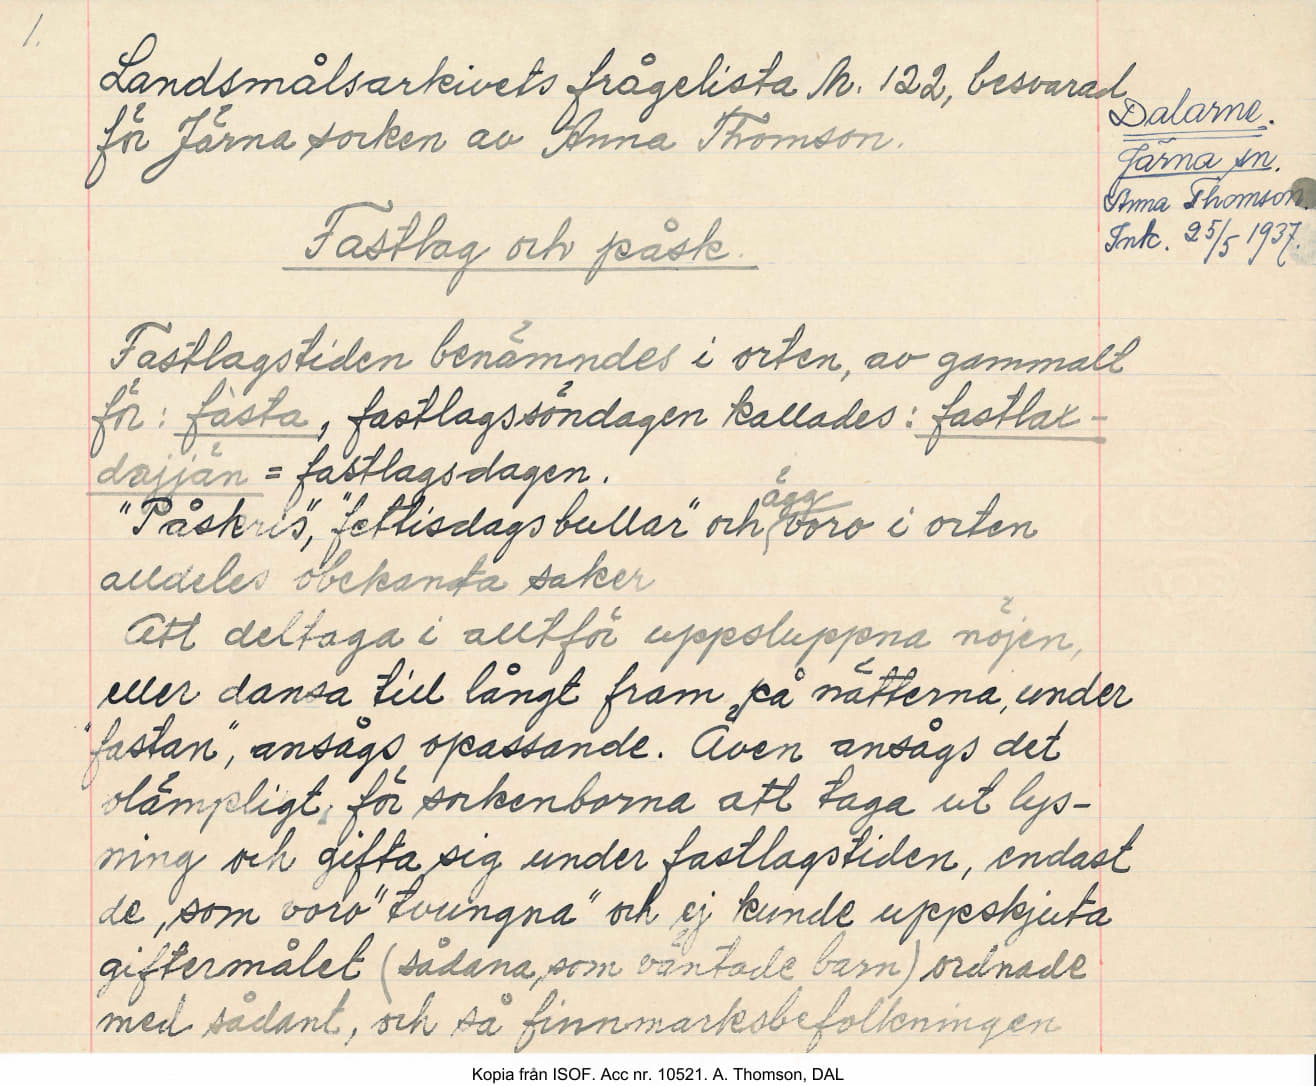 1.
Landsmålsarkivets frågelista M. 122, besvarad
för Järna socken av Anna Thomson.
Dalarne.
Järna sn.
Anna Thomson.
Ink. 25/5 1937.
Fastlag och påsk.
Fastlagstiden benämndes i orten, av gammalt
för: fàsta, fastlagssöndagen kallades: fastlax-
dajján = fastlagsdagen.
"Påskris", "fettisdagsbullar" och ägg voro i orten
alldeles obekanta saker
Att deltaga i alltför uppsluppna nöjen,
eller dansa till långt fram på nätterna, under
"fastan", ansågs opassande. Även ansågs det
olämpligt, för sockenborna att taga ut lys-
ning och gifta sig under fastlagstiden, endast
de, som voro "tvungna" och ej kunde uppskjuta
giftermålet (sådana, som väntade barn) ordnade
med sådant, och så finnmarksbefolkningen
Kopia från ISOF. Acc nr. 10521. A. Thomson, DAL